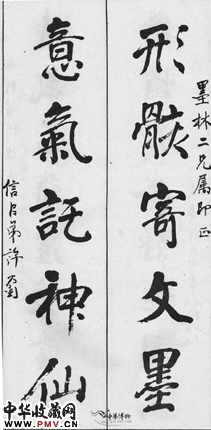 墨林二兄属即正
形骸寄文墨
意氣託神仙
信臣弟許
中華博物
中华收藏网
www.PMV.cn